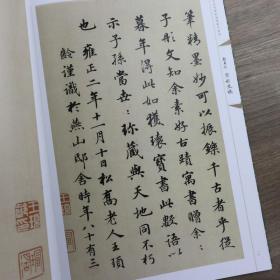 筆精墨妙可以振鑠千古者乎從
子彤文知余素好古蹟寓書贈余〻
暮年得此如獲環寶書此數語以
示子孫當世〻珍藏與天地同不朽
也雍正二年十一月十日松喬老人王頊
齡謹識於燕山邸舍時年八十有三